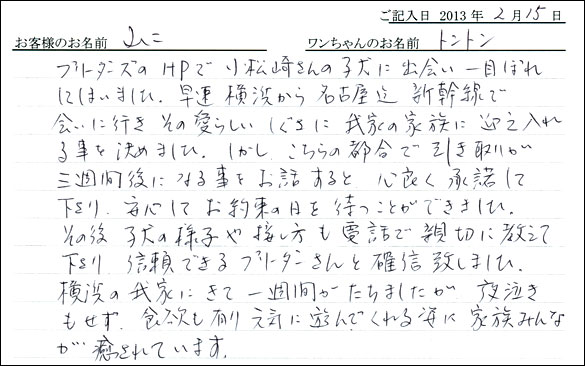 ご記入日 2013 年 2 月 15 日
お客様のお名前 ワンちゃんのお名前 トントン
ブリーダーズの HPで 小松崎さんの子犬に出会い一目ぼれ
してしまいました。早速 横浜から 名古屋迄 新幹線で
会いに行き その愛らしい しぐさに 我家の家族に 迎え入れ
る事を決めました。しかし こちらの都合で 引き取りが
三週間後になる事をお話すると 心良く 承諾して
下さり、安心して お約束の日を 待つことができました。
その後 子犬の様子や 接し方も 電話で 親切に教えて
下さり 信頼できる ブリーダーさんと 確信致しました。
横浜の我家にきて 一週間がたちましたが 夜泣き
もせず、食欲も有り 元気に遊んでくれる姿に 家族みんな
が 癒されています。